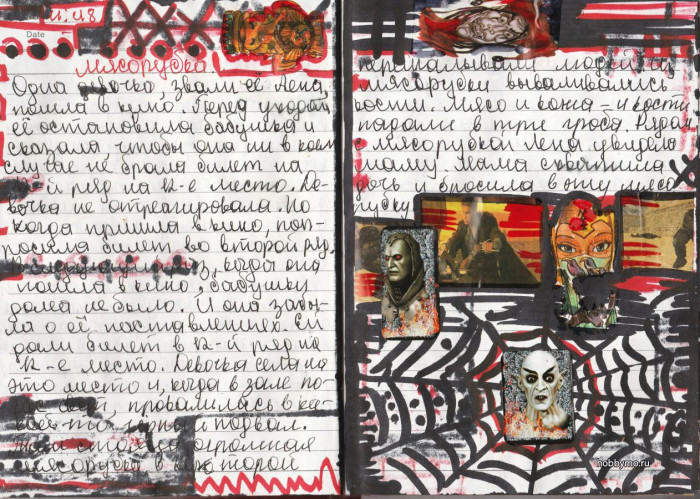 Date
мясорубка
Одна девочка, звали её Лена,
пошла в кино. Перед уходом
её остановила бабушка и
сказала чтобы она ни в коем
случае не брала билет на
12-й ряд на 12-е место. Де-
вочка не отреагировала. Но
когда пришла в кино, поп-
росила билет во второй ряд.
когда она
пошла в кино, бабушки
дома не было. И она забы-
ла о её наставлениях. Ей
дали билет в 12-й ряд на
12-е место. Девочка села на
это место и, когда в зале по-
гас свет, провалилась в ка-
кой-то чёрный подвал.
Там стояла огромная
мясорубка в которой
перемалывали людей из
мясорубки вываливались
кости. Мясо и кожа - и кости
падали в три гроба. Рядом
с мясорубкой Лена увидела
маму. Мама схватила
дочь и бросила в эту мясо-
рубку
hobbymo.ru